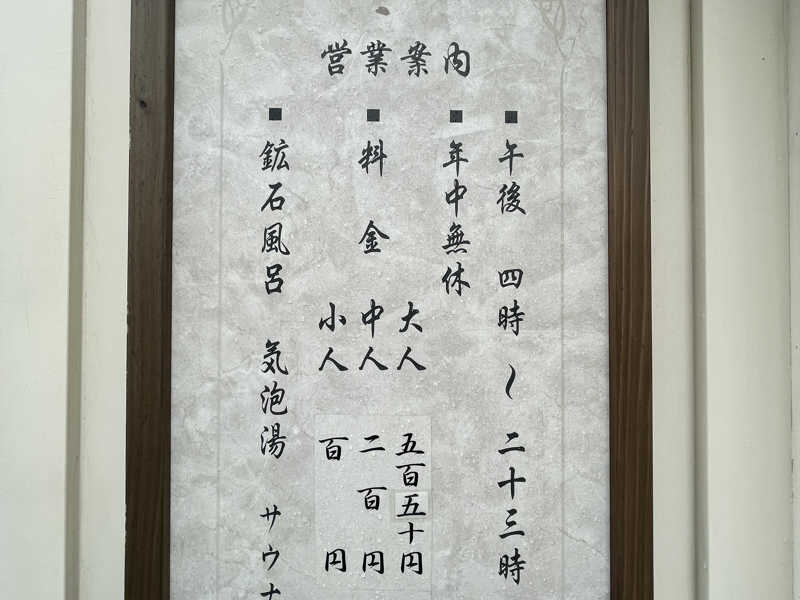 営業案内
■午後 四時 〜 二十三時
■年中無休
■料 金 大人 五百五十円
中人 二百 円
小人 百 円
■鉱石風呂 気泡湯 サウナ